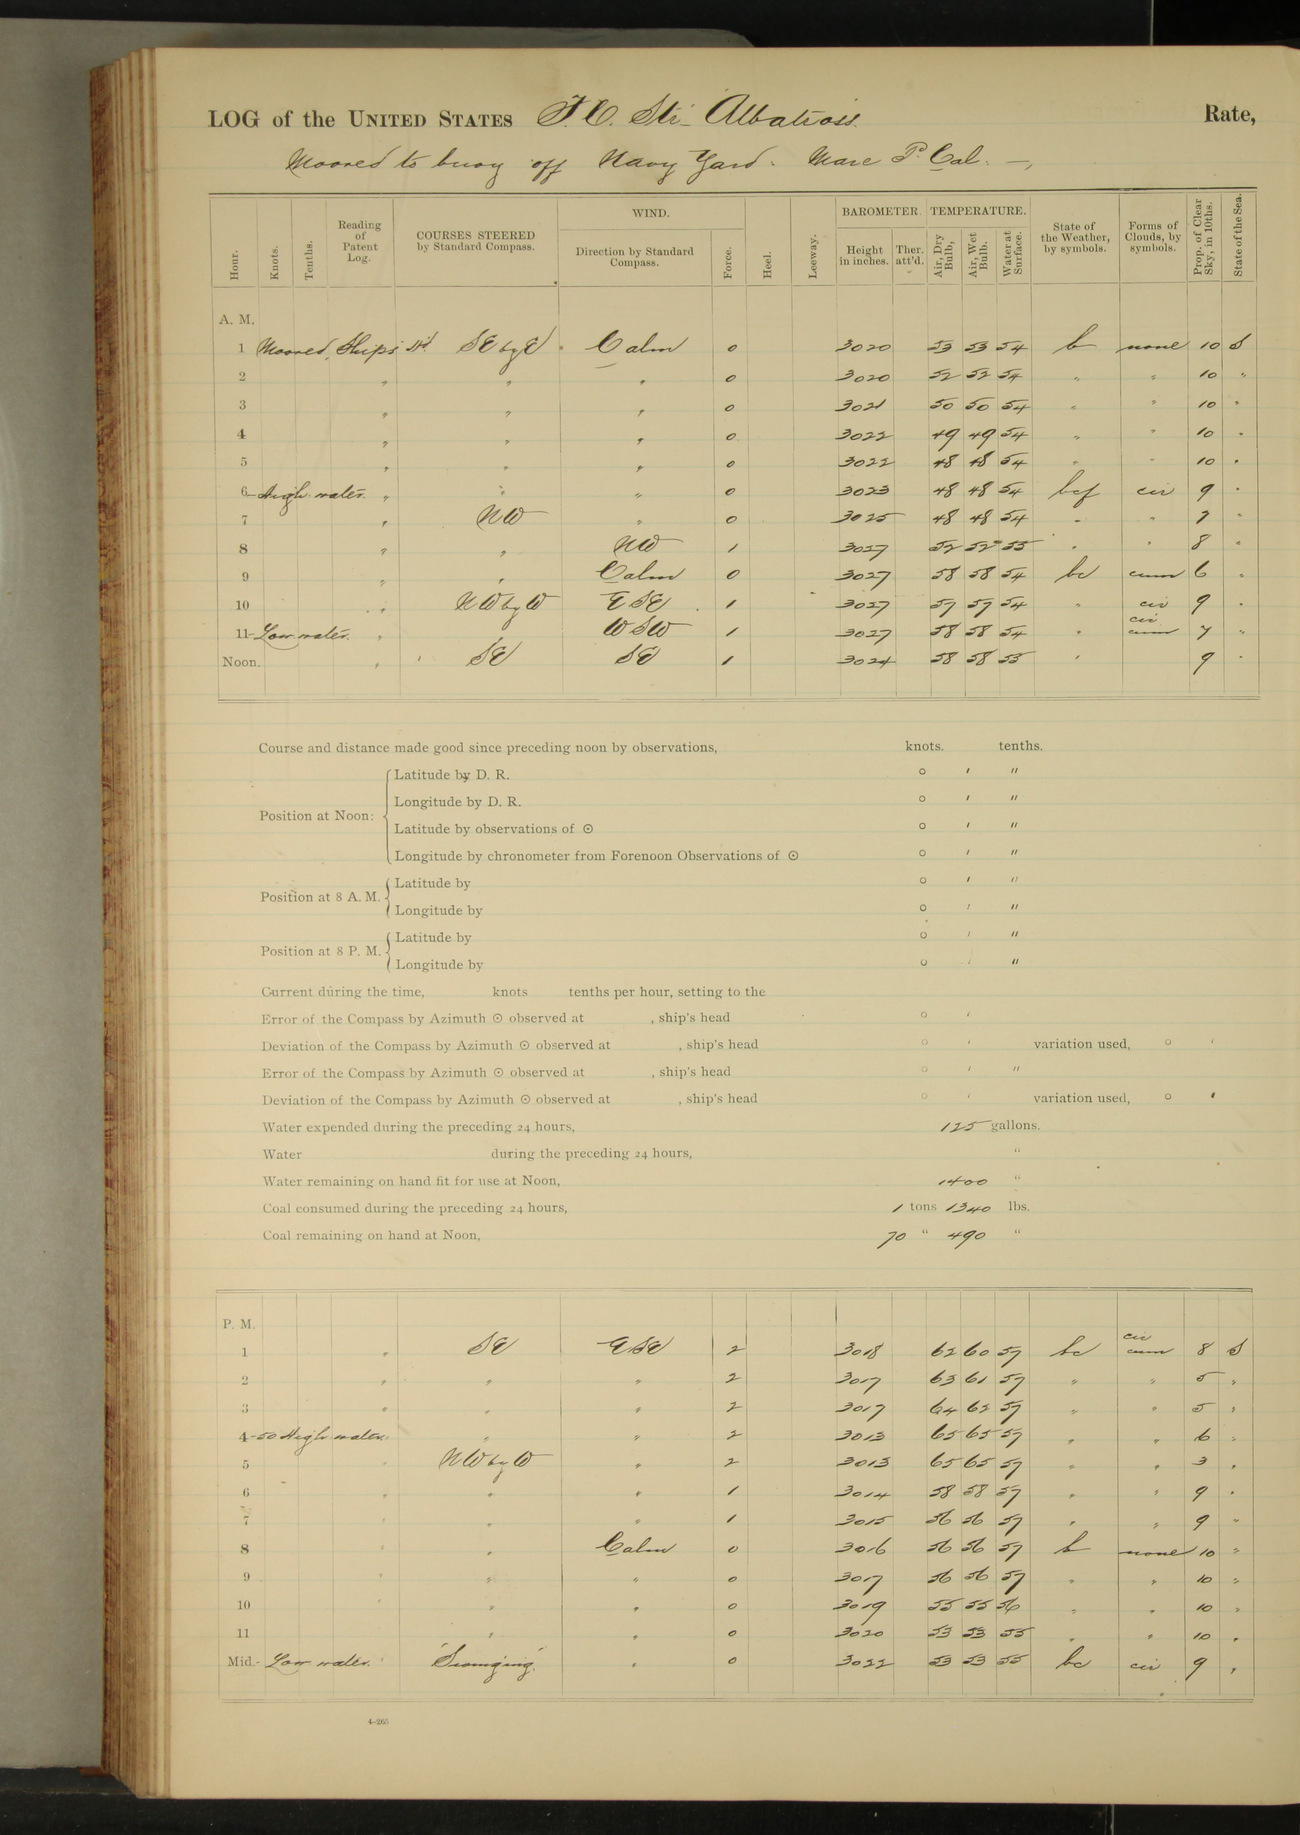 LOG of the UNITED STATES F.C. Str. Albatross Rate,
Moored to buoy off Navy Yard. Mare I. Cal. —,
Hour. Knots. Tenths. Reading of Patent Log. COURSES STEERED by Standard Compass. WIND. Direction by Standard Compass. Force. Heel. Leeway. BAROMETER. Height in inches. Ther. att'd. TEMPERATURE. Air, Dry Bulb, Air, Wet Bulb. Water at Surface. State of the Weather, by symbols. Forms of Clouds, by symbols. Prop. of Clear Sky, in 10ths. State of the Sea.
A. M.
1 Moored, Ships Hd. SE by E Calm 0 3020 53 53 54 b none 10 S
2 " " " 0 3020 52 52 54 " " 10 "
3 " " " 0 3021 50 50 54 " " 10 "
4 " " " 0 3022 49 49 54 " " 10 "
5 " " " 0 3022 48 48 54 " " 10 "
6- High water. " " " 0 3023 48 48 54 bcf cir 9 "
7 " NW " 0 3025 48 48 54 " " 7 "
8 " " NW 1 3027 52 52 55 " " 8 "
9 " " Calm 0 3027 58 58 54 bc cum 6 "
10 " NW by W ESE 1 3027 57 57 54 " cir 9 "
11- Low water. " WSW 1 3027 58 58 54 " cir cum 7 "
Noon. " SE SE 1 3024 58 58 55 " 9 "
Course and distance made good since preceding noon by observations, knots. tenths.
Position at Noon:
Latitude by D. R. ° ' "
Longitude by D. R. ° ' "
Latitude by observations of ☉ ° ' "
Longitude by chronometer from Forenoon Observations of ☉ ° ' "
Position at 8 A. M.
Latitude by ° ' "
Longitude by ° ' "
Position at 8 P. M.
Latitude by ° ' "
Longitude by ° ' "
Current during the time, knots tenths per hour, setting to the
Error of the Compass by Azimuth ☉ observed at , ship's head ° '
Deviation of the Compass by Azimuth ☉ observed at , ship's head ° ' variation used, ° '
Error of the Compass by Azimuth ☉ observed at , ship's head ° ' "
Deviation of the Compass by Azimuth ☉ observed at , ship's head ° ' variation used, ° '
Water expended during the preceding 24 hours, 125 gallons.
Water during the preceding 24 hours, "
Water remaining on hand fit for use at Noon, 1400 "
Coal consumed during the preceding 24 hours, 1 tons 1340 lbs.
Coal remaining on hand at Noon, 70 " 490 "
P. M.
1 " SE ESE 2 3018 62 60 57 bc cir cum 8 S
2 " " " 2 3017 63 61 57 " " 5 "
3 " " " 2 3017 64 62 57 " " 5 "
4-50 High water. " " 2 3013 65 65 57 " " 6 "
5 " NW by W " 2 3013 65 65 57 " " 3 "
6 " " " 1 3014 58 58 57 " " 9 "
7 " " " 1 3015 56 56 57 " " 9 "
8 " " Calm 0 3016 56 56 57 b none 10 "
9 " " " 0 3017 56 56 57 " " 10 "
10 " " " 0 3019 55 55 56 " " 10 "
11 " " 0 3020 53 53 55 " " 10 "
Mid.- Low water. " "Swinging" " 0 3022 53 53 55 bc cir 9 "
4-265